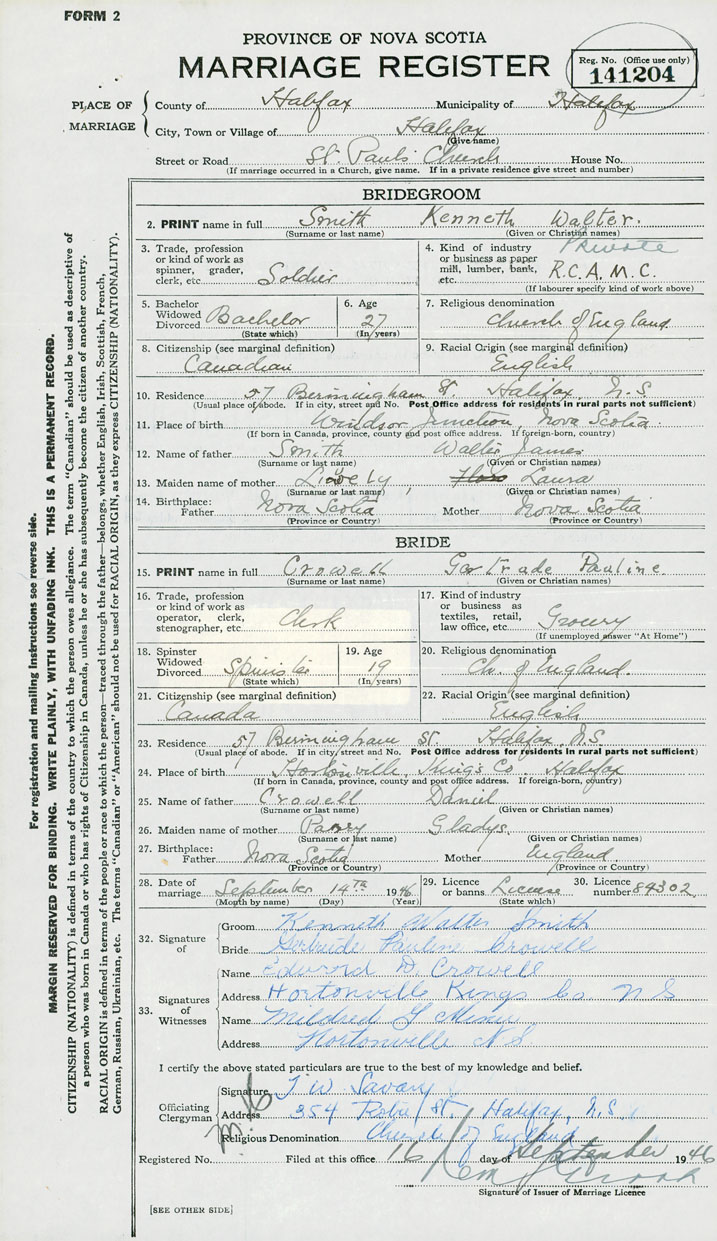 FORM 2
PROVINCE OF NOVA SCOTIA
MARRIAGE REGISTER
Reg. No. (Office use only)
141204
PLACE OF MARRIAGE
County of Halifax Municipality of Halifax
City, Town or Village of Halifax
(Give name)
Street or Road St. Pauls Church House No.
(If marriage occurred in a Church, give name. If in a private residence give street and number)
BRIDEGROOM
2. PRINT name in full Smith Kenneth Walter.
(Surname or last name) (Given or Christian names)
3. Trade, profession or kind of work as spinner, grader, clerk, etc. Soldier
4. Kind of industry or business as paper mill, lumber, bank, etc. Private R.C.A.M.C.
(If labourer specify kind of work above)
5. Bachelor Widowed Divorced Bachelor
(State which)
6. Age 27
(In years)
7. Religious denomination
Church of England
8. Citizenship (see marginal definition)
Canadian
9. Racial Origin (see marginal definition)
English
10. Residence 57 Bermingham St. Halifax, N.S.
(Usual place of abode. If in city, street and No. Post Office address for residents in rural parts not sufficient)
11. Place of birth Windsor Junction, Nova Scotia
(If born in Canada, province, county and post office address. If foreign-born, country)
12. Name of father Smith Walter James
(Surname or last name) (Given or Christian names)
13. Maiden name of mother Laura
(Surname or last name) (Given or Christian names)
14. Birthplace: Father Nova Scotia Mother Nova Scotia
(Province or Country) (Province or Country)
BRIDE
15. PRINT name in full Crowell Gertrade Pauline
(Surname or last name) (Given or Christian names)
16. Trade, profession or kind of work as operator, clerk, stenographer, etc. Clerk
17. Kind of industry or business as textiles, retail, law office, etc. Grocery
(If unemployed answer "At Home")
18. Spinster Widowed Divorced Spinster
(State which)
19. Age 19
(In years)
20. Religious denomination
Ch. of England
21. Citizenship (see marginal definition)
Canada
22. Racial Origin (see marginal definition)
English
23. Residence 57 Bermingham St. Halifax N.S
(Usual place of abode. If in city, street and No. Post Office address for residents in rural parts not sufficient)
24. Place of birth Hortonville Kings Co. Halifax
(If born in Canada, province, county and post office address. If foreign-born, country)
25. Name of father Crowell Daniel
(Surname or last name) (Given or Christian names)
26. Maiden name of mother Gladys
(Surname or last name) (Given or Christian names)
27. Birthplace: Father Nova Scotia Mother England
(Province or Country) (Province or Country)
28. Date of marriage September 14TH 1946
(Month by name) (Day) (Year)
29. Licence or banns License
(State which)
30. Licence number 84302
32. Signature of
Groom Kenneth Walter Smith
Bride Gertrude Pauline Crowell
33. Signatures of Witnesses
Name Edward D. Crowell
Address Hortonville Kings Co. N S
Name Mildred
Address Hortonville N S
I certify the above stated particulars are true to the best of my knowledge and belief.
Officiating Clergyman
Signature T W Savary
Address 354 Robie St. Halifax, N.S.
Religious Denomination Church of England
Registered No. Filed at this office 16 day of September 1946
Signature of Issuer of Marriage Licence
[SEE OTHER SIDE]
For registration and mailing instructions see reverse side.
MARGIN RESERVED FOR BINDING. WRITE PLAINLY, WITH UNFADING INK. THIS IS A PERMANENT RECORD.
CITIZENSHIP (NATIONALITY) is defined in terms of the country to which the person owes allegiance. The term "Canadian" should be used as descriptive of
a person who was born in Canada or who has rights of Citizenship in Canada, unless he or she has subsequently become the citizen of another country.
RACIAL ORIGIN is defined in terms of the people or race to which the person—traced through the father—belongs, whether English, Irish, Scottish, French,
German, Russian, Ukrainian, etc. The terms "Canadian" or "American" should not be used for RACIAL ORIGIN, as they express CITIZENSHIP (NATIONALITY).